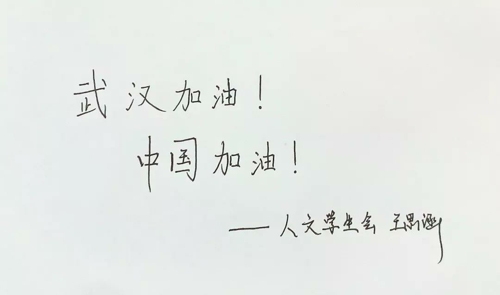 武汉加油！
中国加油！
——人文学生会 王思涵